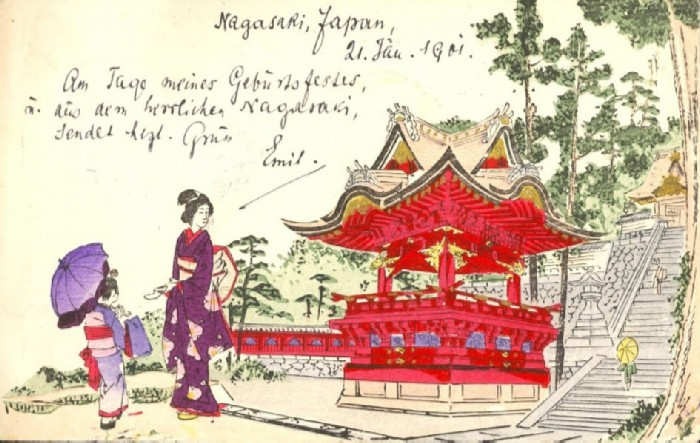 Nagasaki, Japan,
21. Jan. 1901.
Am Tage meines Geburtsfestes,
u. aus dem herrlichen Nagasaki,
sendet herzl. Gruß
Emil.